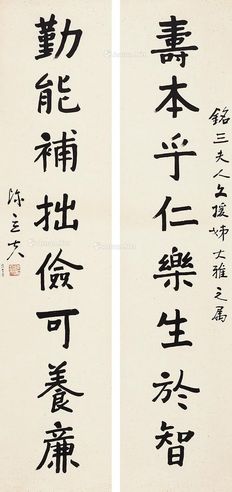 銘三夫人文援姊大雅之属
壽本乎仁樂生於智
勤能補拙儉可養廉
陳立夫